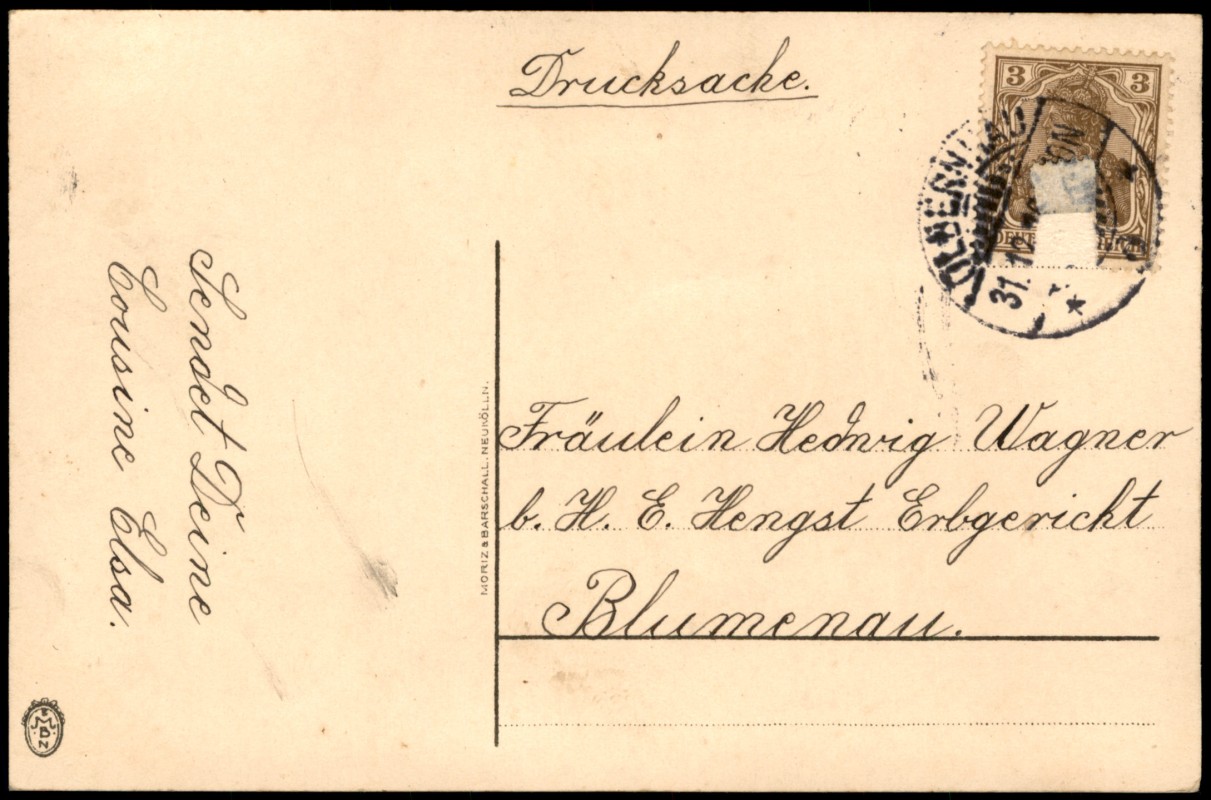 Drucksache.
3 3
Sendet Deine
Cousine Elsa.
MORIZ & BARSCHALL. NEUKÖLLN.
Fräulein Hedwig Wagner
b. H. E. Hengst Erbgericht
Blumenau.